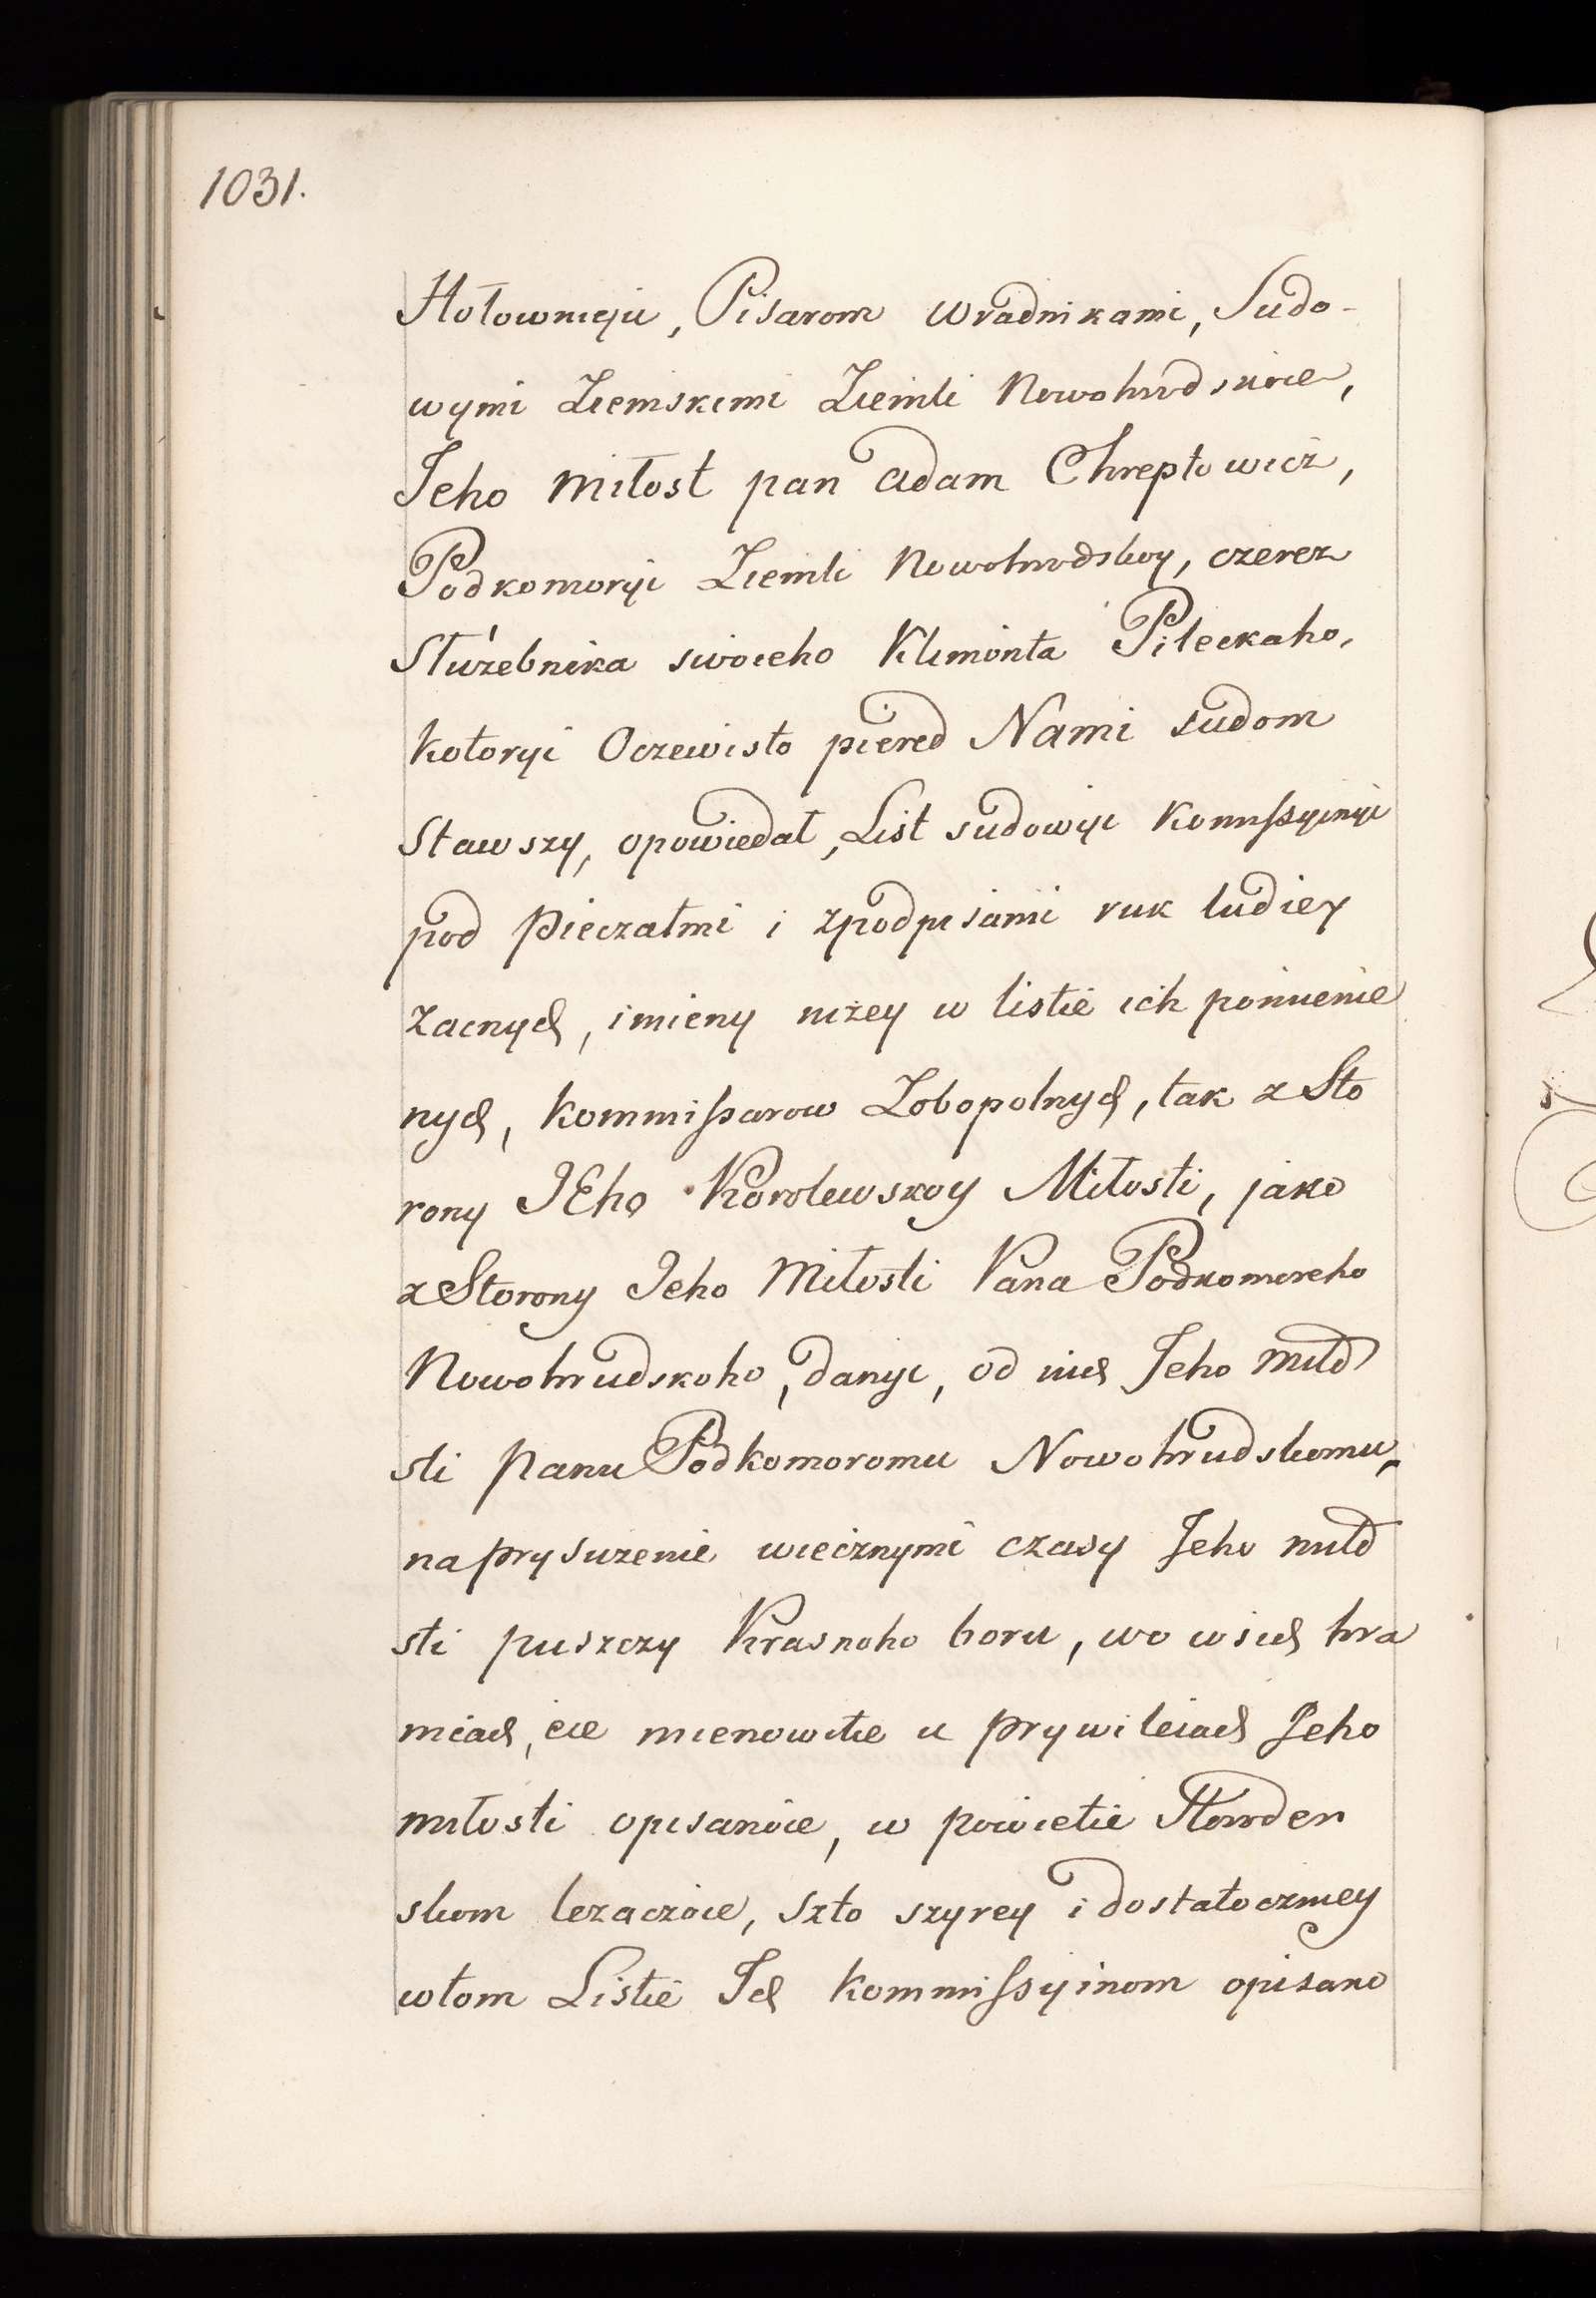 1031.
Hołownieju, Pisarom wradnikami, Sudo-
wymi Ziemskimi Ziemli Nowohrodskoie,
Jeho Miłost pan Adam Chreptowicz,
Podkomoryi Ziemli Nowohrodskoy, czerez
Służebnika swoieho Klimonta Pileckaho,
kotoryi Oczewisto piered Nami sudom
Stawszy, opowiedał, List sudowyi Komissyinyi
pod pieczatmi i zpodpisami ruk ludiey
zacnych, imieny niżey w listie ich pomienie
nych, kommissarow Zobopolnych, tak z Sto
rony JEho Korolewskoy Miłosti, jako
z Storony Jeho Miłosti Pana Podkomoreho
Nowohrudskoho, danyi, od nich Jeho miło
sti panu Podkomoromu Nowohrudskomu,
na prysużenie wiecznymi czasy Jeho miło
sti puszczy Krasnoho boru, wo wsich hra
nicach, eie mienowitie u prywileiach Jeho
miłosti opisanoie, w powietie Horoden
skom leżaczoie, szto szyrey i dostatoczniey
w tom Listie Ich kommissyinom opisano